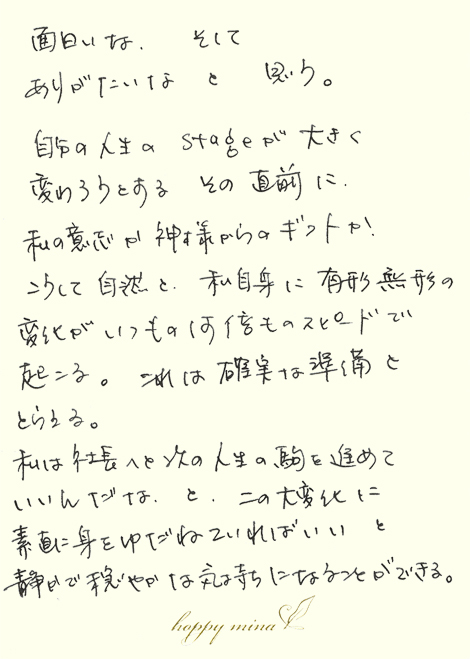 面白いな. そして
ありがたいな と 思う。
自分の人生の stageが 大きく
変わろうとする その 直前に.
私の意志か 神様からのギフトか!
こうして 自然と. 私自身に 有形無形の
変化が いつもの何倍ものスピードで
起こる。 これは確実な準備と
とらえる。
私は社長へと次の人生の駒を進めて
いいんだな. と. この大変化に
素直に身をゆだねていればいい と
静かで穏やかな気持ちになることができる。
happy mina